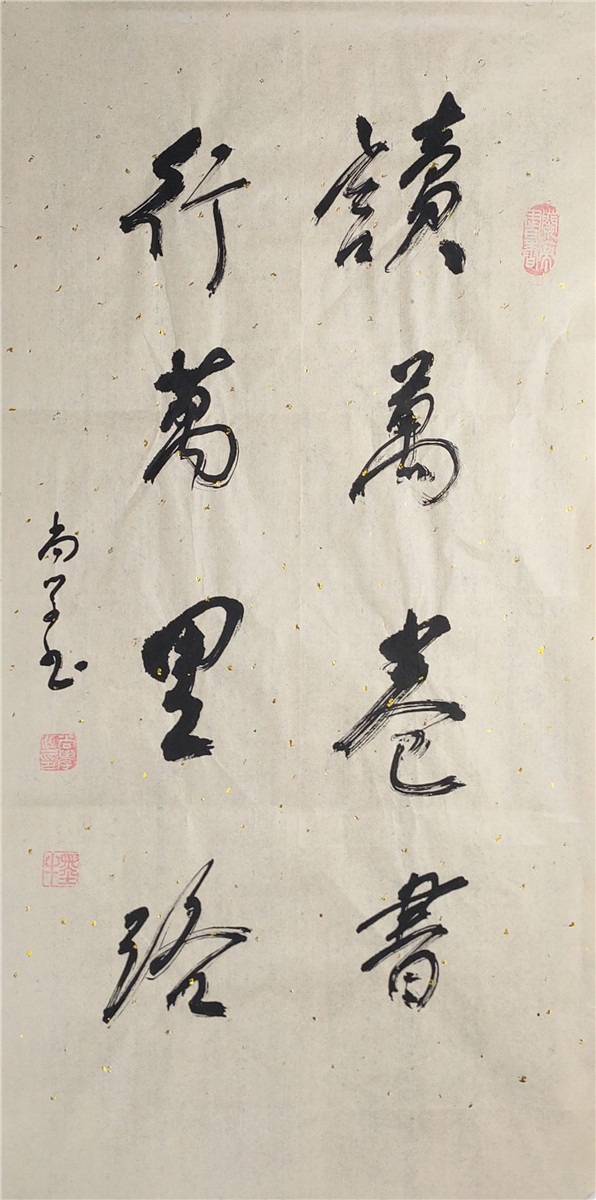 讀萬卷書
行萬里路
尚学书